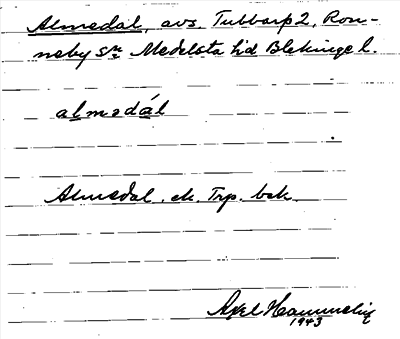 Almedal, avs. Tubbarp 2, Ron-
neby sn Medelsta hd Blekinge l.
almədál
Almedal. ek. Trp. bsk
Axel Hammelin
1943